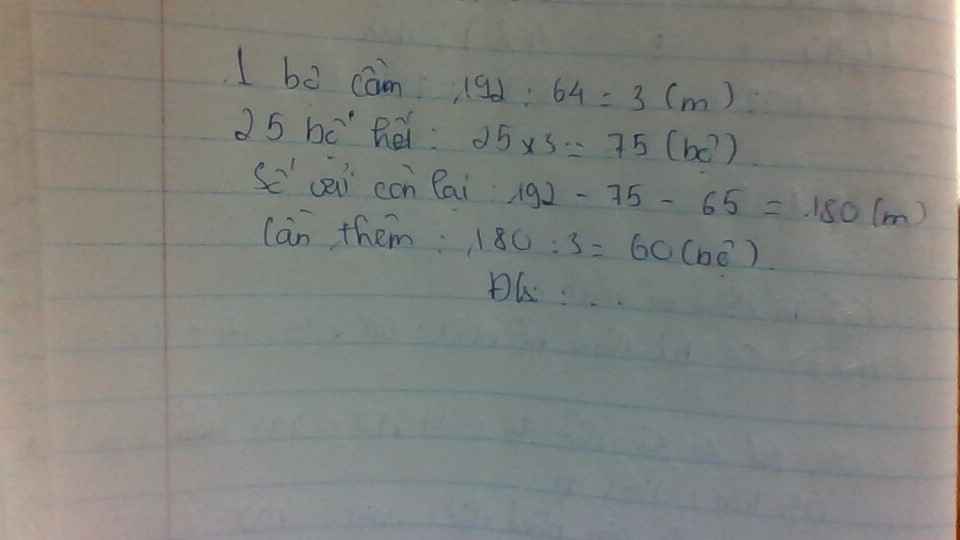 1 bộ cần : 192 : 64 = 3 (m) .
25 bộ hết : 25 x 3 = 75 (bộ)
Số vải còn lại : 192 - 75 - 65 = 180 (m)
Cần thêm : 180 : 3 = 60 (bộ)
Đ/s : . .